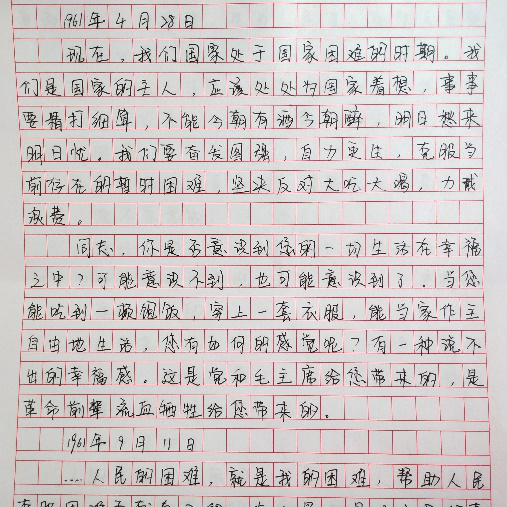 1961年4月28日
现在,我们国家处于国家困难的时期。我
们是国家的主人,应该处处为国家着想,事事
要精打细算,不能今朝有酒今朝醉,明日愁来
明日忧。我们要奋发图强,自力更生,克服当
前存在的暂时困难,坚决反对大吃大喝,力戒
浪费。
同志,你是否意识到您的一切生活在幸福
之中?可能意识不到,也可能意识到了。当您
能吃到一顿饱饭,穿上一套衣服,能当家作主
自由地生活,您有如何的感觉呢?有一种说不
出的幸福感。这是党和毛主席给您带来的,是
革命前辈流血牺牲给您带来的。
1961年9月11日
……人民的困难,就是我的困难,帮助人民